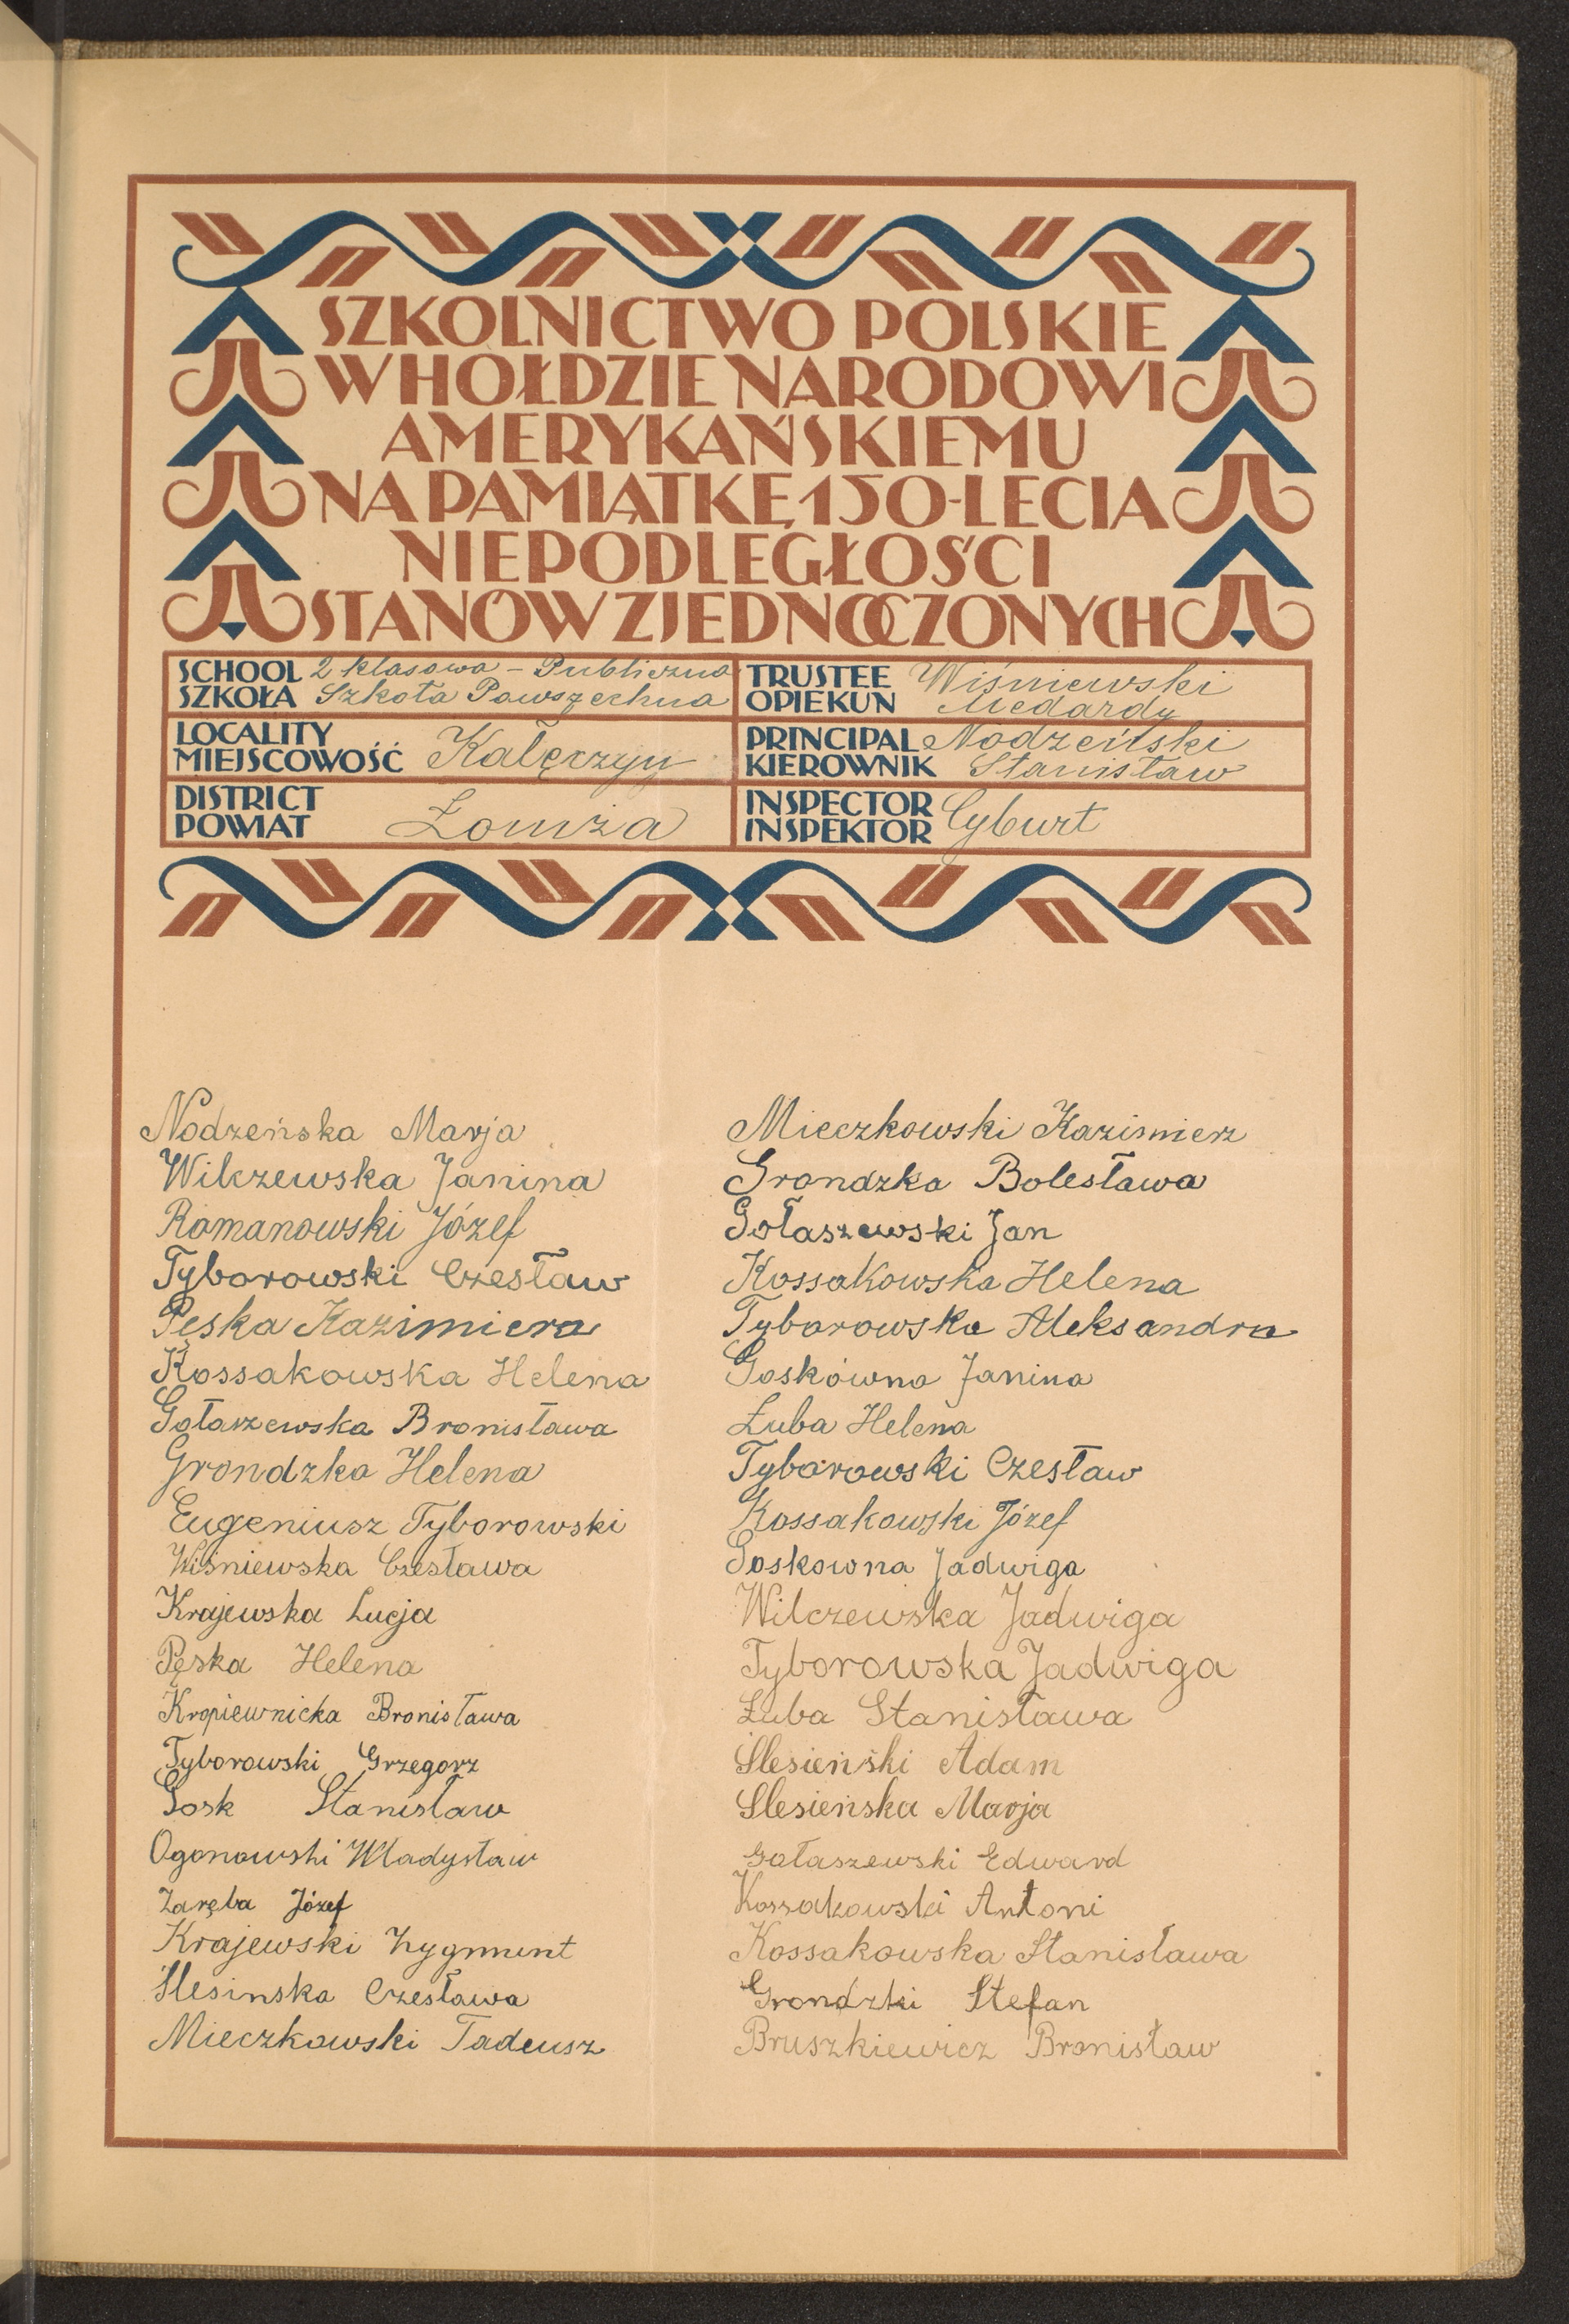 SZKOLNICTWO POLSKIE
W HOŁDZIE NARODOWI
AMERYKAŃSKIEMU
NA PAMIĄTKĘ 150-LECIA
NIEPODLEGŁOŚCI
STANÓW ZJEDNOCZONYCH
SCHOOL 2 klasowa - Publiczna
SZKOŁA Szkoła Powszechna
TRUSTEE Wiśniewski
OPIEKUN Medardy
LOCALITY
MIEJSCOWOŚĆ Kalęczyn
PRINCIPAL Nodzeński
KIEROWNIK Stanisław
DISTRICT
POWIAT Łomża
INSPECTOR
INSPEKTOR Cyburt
Nodzeńska Marja
Wilczewska Janina
Romanowski Józef
Tyborowski Czesław
Pęska Kazimiera
Kossakowska Helena
Gołaszewska Bronisława
Grondzka Helena
Eugeniusz Tyborowski
Wiśniewska Czesława
Krajewska Łucja
Pęska Helena
Kropiewnicka Bronisława
Tyborowski Grzegorz
Gosk Stanisław
Ogonowski Władysław
Zaręba Józef
Krajewski Zygmunt
Slesinska Czesława
Mieczkowski Tadeusz
Mieczkowski Kazimierz
Grondzka Bolesława
Gołaszewski Jan
Kossakowska Helena
Tyborowska Aleksandra
Goskówna Janina
Łuba Helena
Tyborowski Czesław
Kossakowski Józef
Goskowna Jadwiga
Wilczewska Jadwiga
Tyborowska Jadwiga
Łuba Stanisława
Slesieński Adam
Slesieńska Marja
Gołaszewski Edward
Kossakowski Antoni
Kossakowska Stanisława
Grondzki Stefan
Bruszkiewicz Bronisław